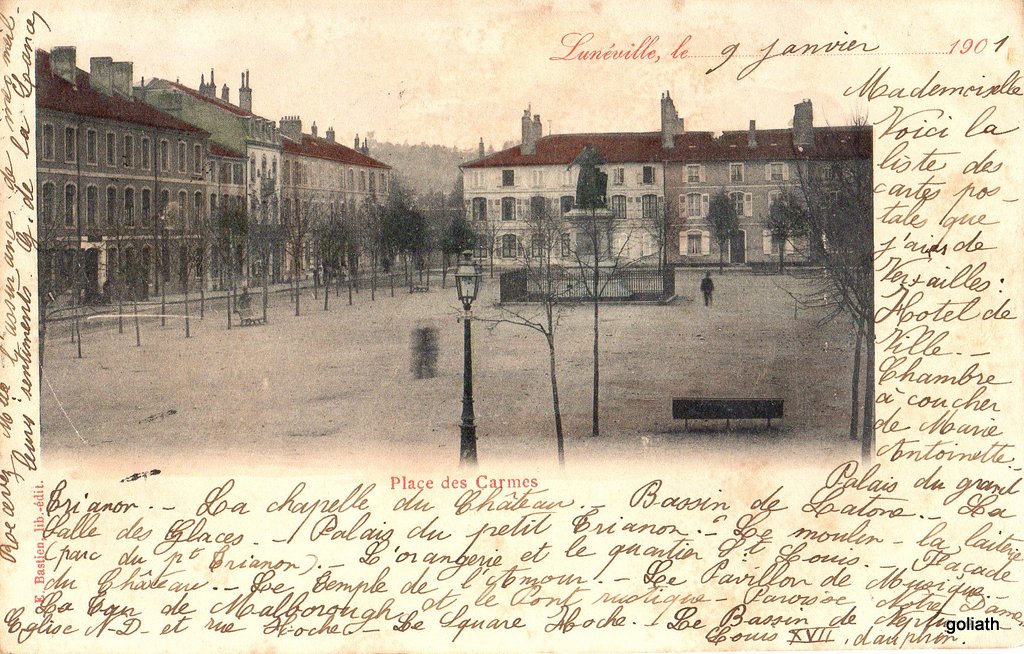 Lunéville, le 9 janvier 1901
Mademoiselle
Voici la
liste des
cartes pos-
tales que
j'ai de
Versailles:
Hotel de
Ville. -
Chambre
à coucher
de Marie
Antoinette.
Palais du grand
Trianon. - La chapelle du Château. - Bassin de Latone. - La
Salle des Glaces. - Palais du petit Trianon. - Le moulin - la laiterie
(parc du pt Trianon). - L'orangerie et le quartier St Louis. - Façade
du Château. - Le Temple de l'Amour. - Le Pavillon de Musique. -
La Tour de Malborough et le Pont rustique - Paroisse Notre Dame
Eglise N-D- et rue Hoche. - Le Square Hoche. - Le Bassin de Neptune
Louis XVII, dauphin. -
Recevez Mlle l'assurance de mes meil-
leurs sentiments G. de la
Place des Carmes
E. Bastien, lib.-édit.
goliath